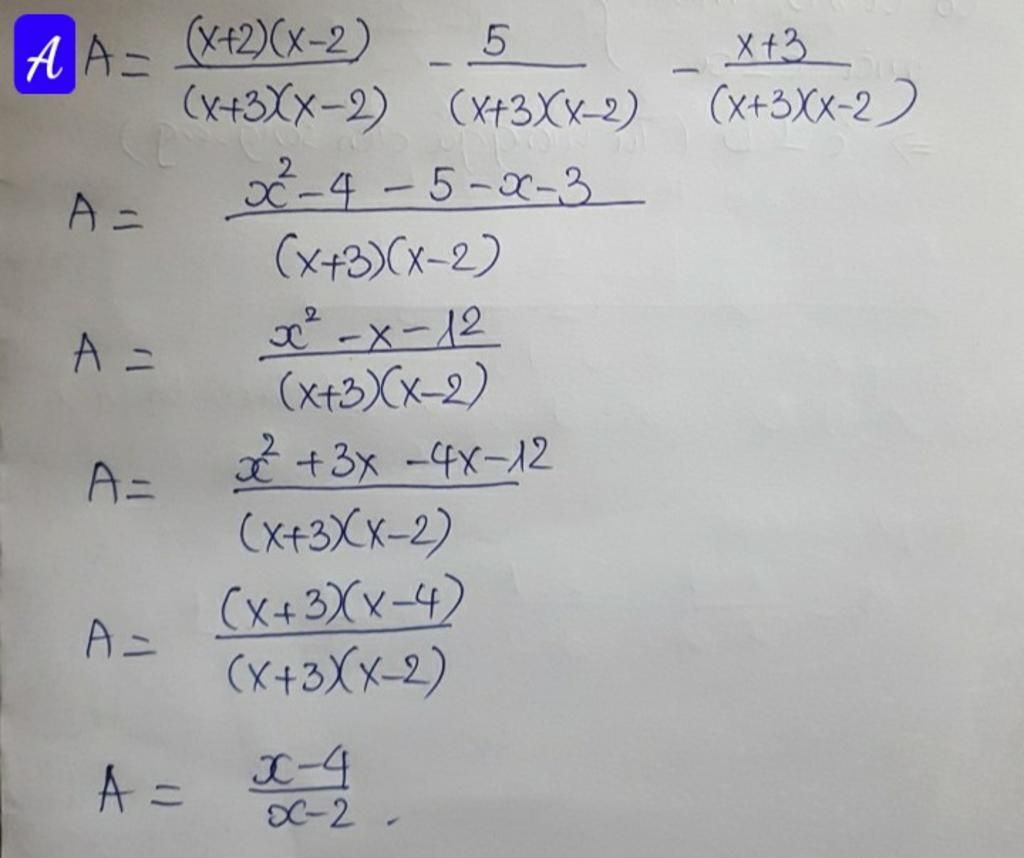 A A = (x+2)(x-2)/(x+3)(x-2) - 5/(x+3)(x-2) - x+3/(x+3)(x-2)
A = x² - 4 - 5 - x - 3/(x+3)(x-2)
A = x² - x - 12/(x+3)(x-2)
A = x² + 3x - 4x - 12/(x+3)(x-2)
A = (x+3)(x-4)/(x+3)(x-2)
A = x-4/x-2 .